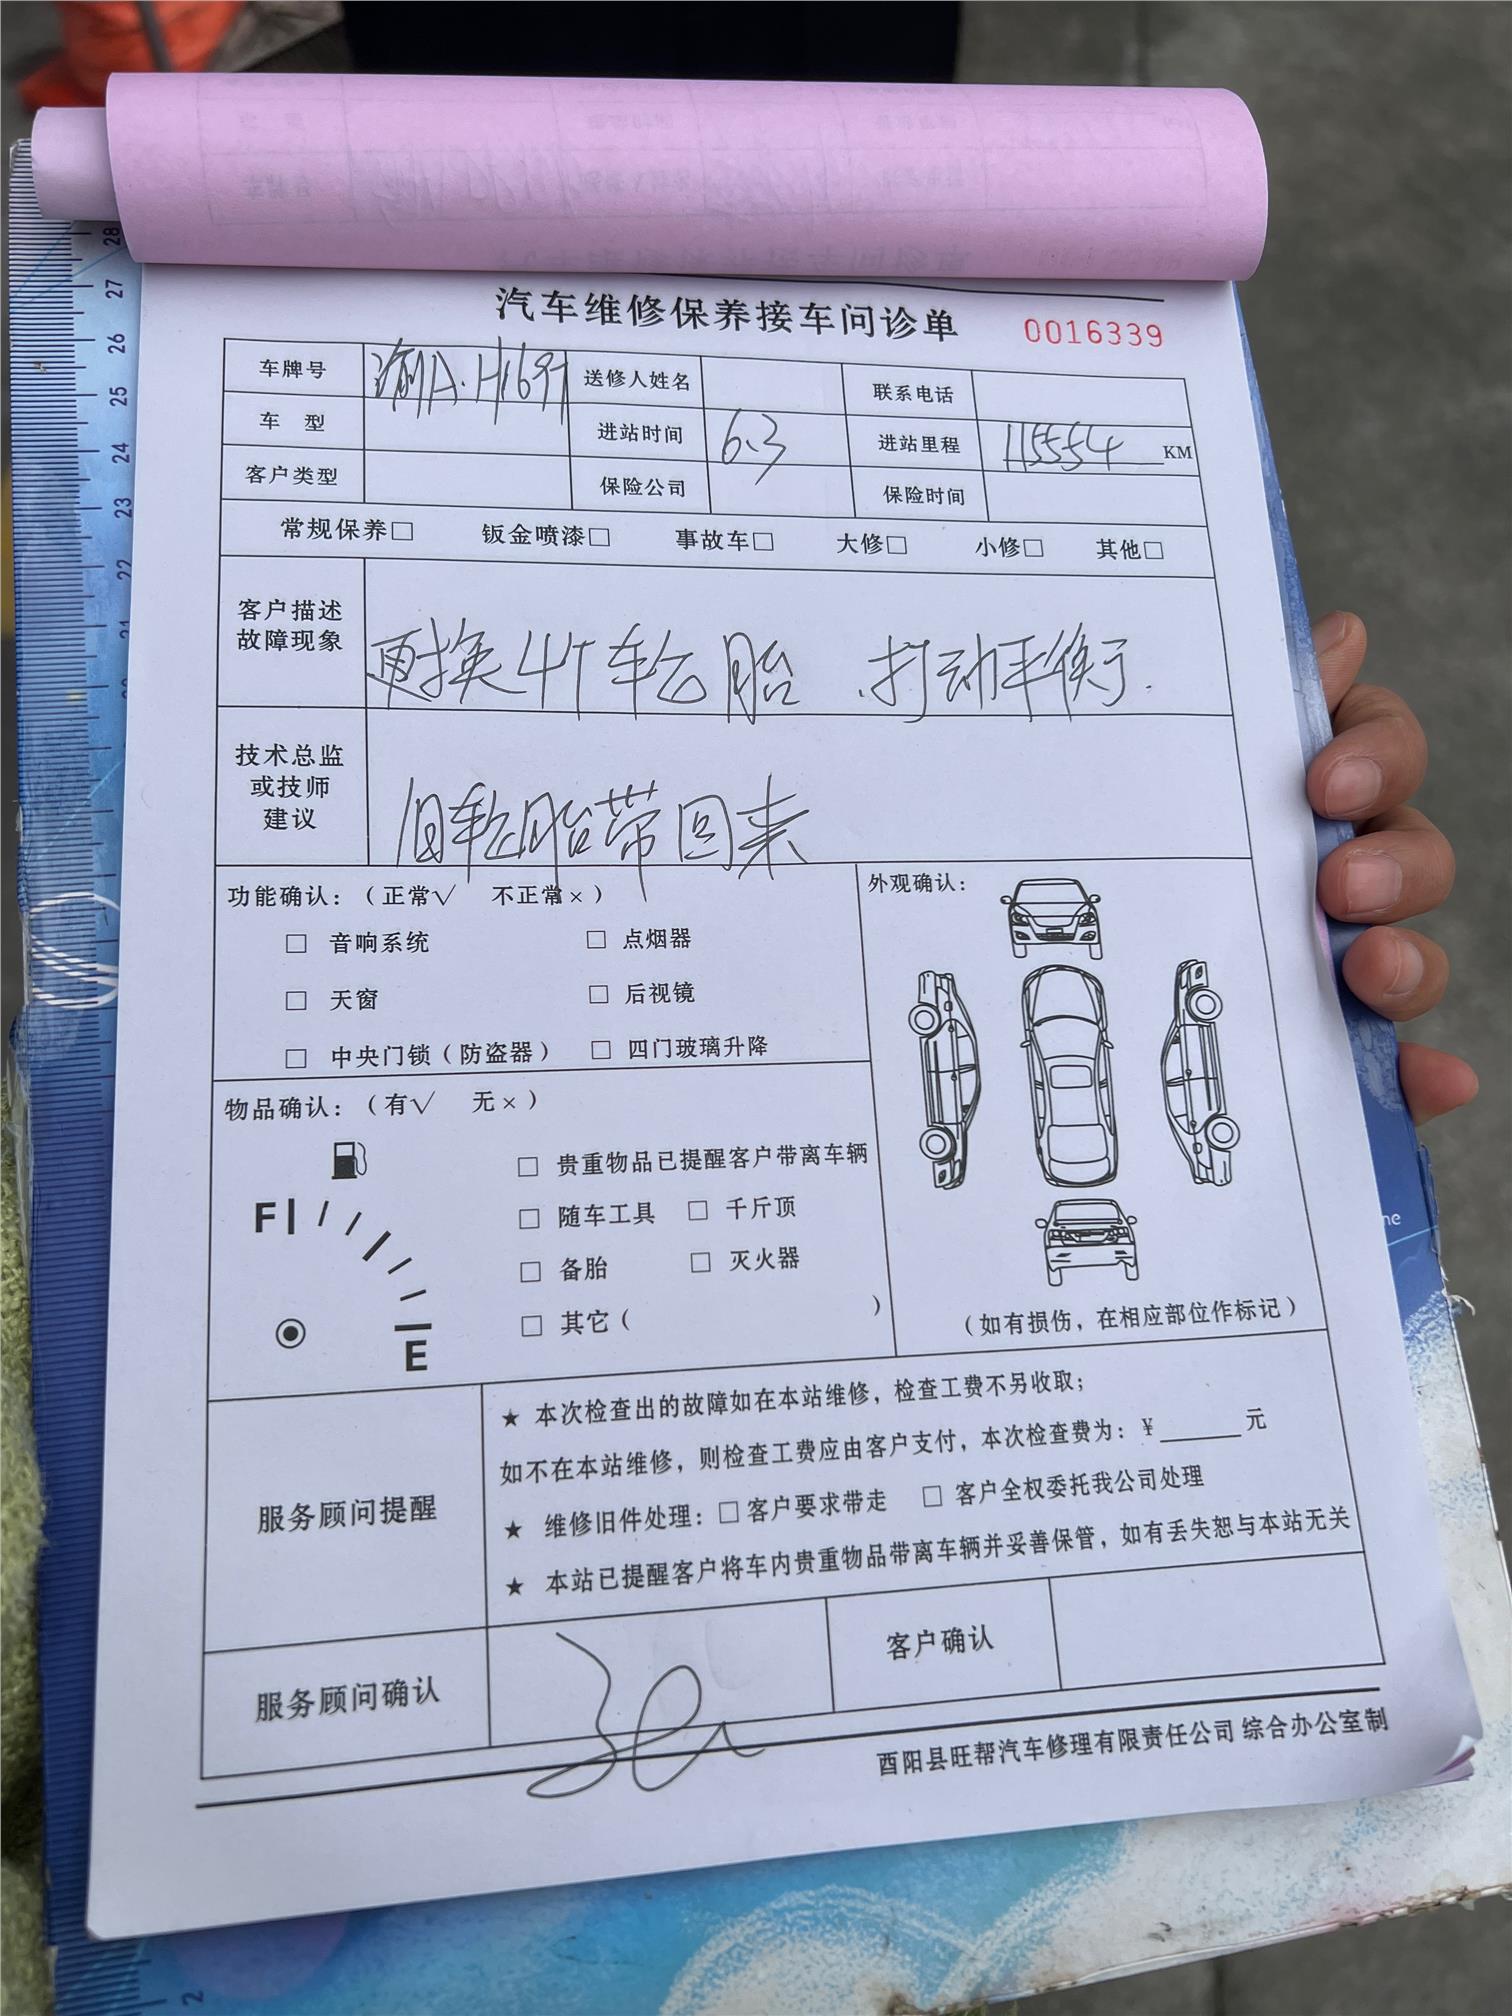 汽车维修保养接车问诊单 0016339
车牌号 送修人姓名 联系电话
车 型 进站时间 6.3 进站里程 115554 KM
客户类型 保险公司 保险时间
常规保养□ 钣金喷漆□ 事故车□ 大修□ 小修□ 其他□
客户描述
故障现象
更换4个轮胎、打动平衡.
技术总监
或技师
建议
旧轮胎带回来
功能确认：（正常√ 不正常×）
□ 音响系统 □ 点烟器
□ 天窗 □ 后视镜
□ 中央门锁（防盗器） □ 四门玻璃升降
外观确认：
（如有损伤，在相应部位作标记）
物品确认：（有√ 无×）
F
E
□ 贵重物品已提醒客户带离车辆
□ 随车工具 □ 千斤顶
□ 备胎 □ 灭火器
□ 其它（ ）
服务顾问提醒
★ 本次检查出的故障如在本站维修，检查工费不另收取；
如不在本站维修，则检查工费应由客户支付，本次检查费为：¥______元
★ 维修旧件处理：□ 客户要求带走 □ 客户全权委托我公司处理
★ 本站已提醒客户将车内贵重物品带离车辆并妥善保管，如有丢失恕与本站无关
服务顾问确认 客户确认
酉阳县旺帮汽车修理有限责任公司 综合办公室制
28
27
26
25
24
23
22
21